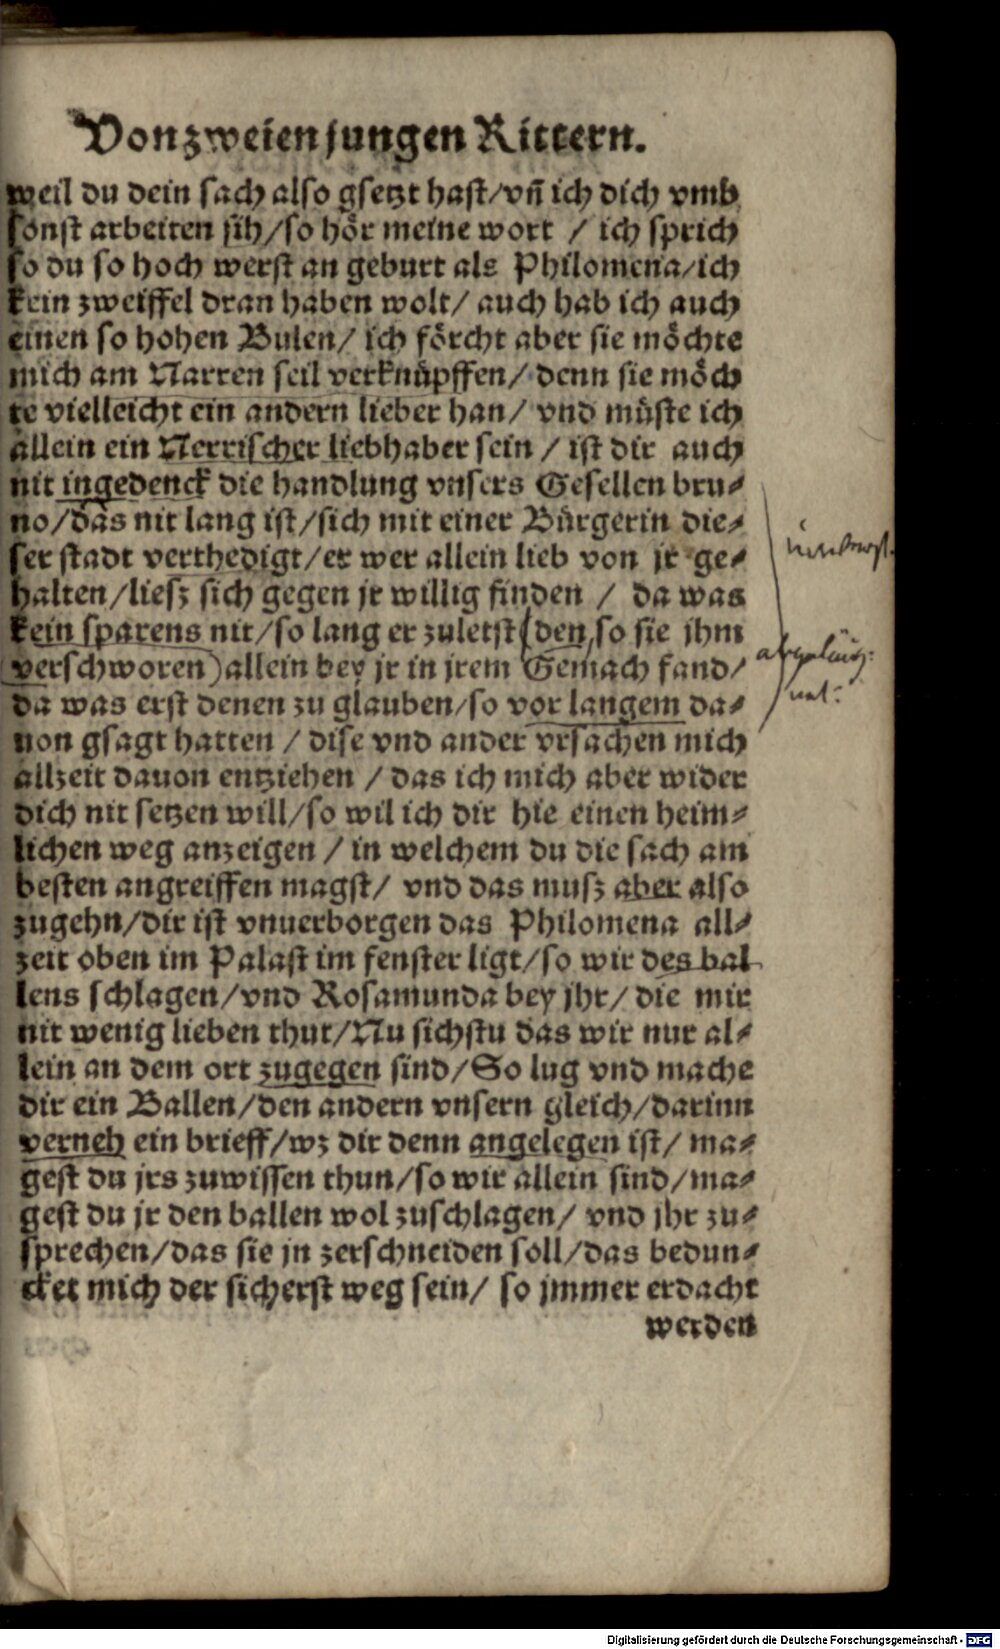 Von zweien jungen Rittern.
weil du dein sach also gsetzt hast/vñ ich dich vmb
sonst arbeiten sih/so hoͤr meine wort / ich sprich
so du so hoch werst an geburt als Philomena/ich
kein zweiffel dran haben wolt/ auch hab ich auch
einen so hohen Bulen/ ich foͤrcht aber sie moͤchte
mich am Narren seil verknuͤpffen/ denn sie moͤch
te vielleicht ein andern lieber han/ vnd muͤste ich
allein ein Nerrischer liebhaber sein / ist dir auch
nit ingedenck die handlung vnsers Gesellen bru⸗
no/das nit lang ist/sich mit einer Buͤrgerin die⸗
ser stadt verthedigt/er wer allein lieb von jr ge⸗
halten/liesz sich gegen jr willig finden / da was
kein sparens nit/so lang er zuletst (den, so sie jhm
verschworen) allein bey jr in jrem Gemach fand/
da was erst denen zu glauben/so vor langem da⸗
uon gsagt hatten / dise vnd ander vrsachen mich
allzeit dauon entziehen / das ich mich aber wider
dich nit setzen will/so wil ich dir hie einen heim⸗
lichen weg anzeigen / in welchem du die sach am
besten angreiffen magst/ vnd das musz aber also
zugehn/dir ist vnuerborgen das Philomena all⸗
zeit oben im Palast im fenster ligt/so wir des bal
lens schlagen/vnd Rosamunda bey jhr/ die mir
nit wenig lieben thut/Nu sichstu das wir nur al⸗
lein an dem ort zugegen sind/So lug vnd mache
dir ein Ballen/den andern vnsern gleich/darinn
verneh ein brieff/wz dir denn angelegen ist/ ma⸗
gest du jrs zuwissen thun/so wir allein sind/ma⸗
gest du jr den ballen wol zuschlagen/ vnd jhr zu⸗
sprechen/das sie jn zerschneiden soll/das bedun⸗
cket mich der sicherst weg sein/ so jmmer erdacht
werden
Digitalisierung gefördert durch die Deutsche Forschungsgemeinschaft - DFG